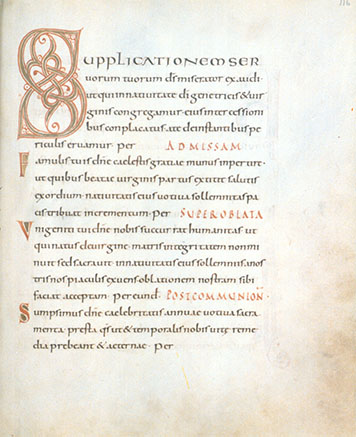 116
SUPPLICATIONEM SER
uorum tuorum ds miserator exaudi
ut qui innatiuitate di genetricis & uir
ginis congregamur eius intercessioni
bus conplacatus ate deinstantibus pe
riculis eruamur. per AD MISSAM
Famulis tuis dne caelestis gratiae munus inpertire
ut quibus beatae uirginis partus extitit salutis
exordium. natiuitatis eius uotiua sollemnitas pa
cis tribuat incrementum. per SUPER OBLATA
Unigeniti tui dne nobis succurrat humanitas ut
qui natus deuirgine. matris integritatem non mi
nuit sed sacrauit. innatiuitatis eius sollemniis anos
tris nos piaculis exuens oblationem nostram sibi
faciat acceptam. per eund POSTCOMMUNION
Sumpsimus dne caelebritatis annuae uotiua sacra
menta. presta qs ut & temporalis nobis uitae reme
dia prebeant & aeternae. Per